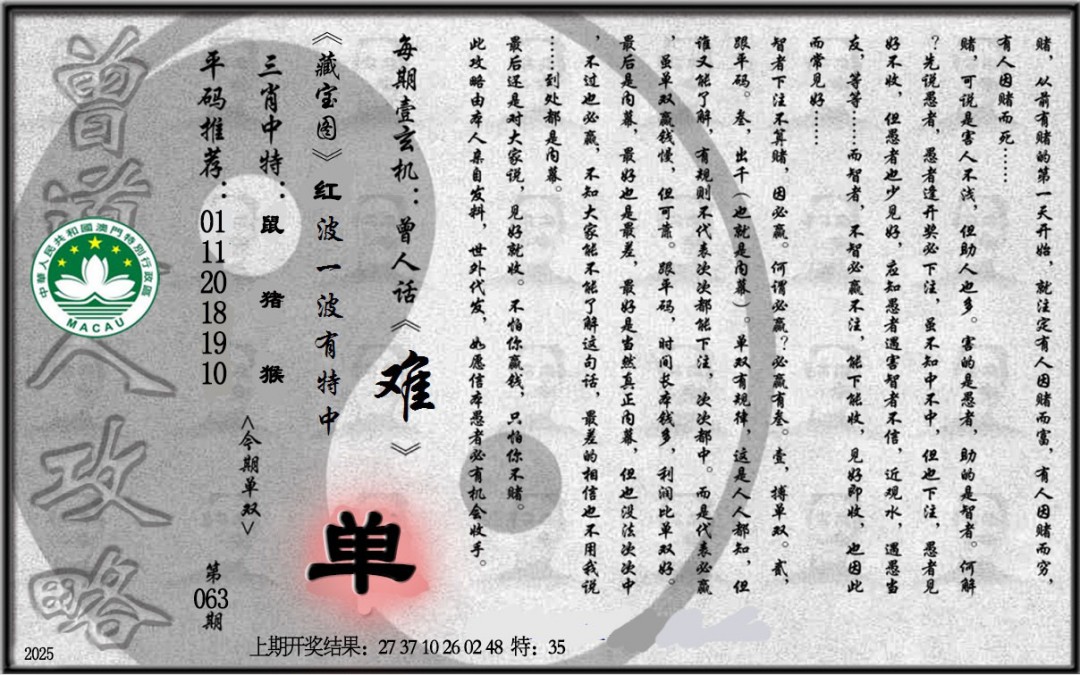 赌，从前有赌的第一天开始，就注定有人因赌而富，有人因赌而穷，
有人因赌而死……
赌，可说是害人不浅，但助人也多。害的是愚者，助的是智者。何解
？先说愚者，愚者逢开奖必下注，虽不知中不中，但也下注，愚者见
好不收，但愚者也少见好，应知愚者遇害智者不信，近观水，遇愚当
友，等等……而智者，不智必赢不注，能下能收，见好即收，也因此
而常见好……
智者下注不算赌，因必赢。何谓必赢？必赢有叁。壹，搏单双。贰，
跟平码。叁，出千（也就是内幕）。单双有规律，这是人人都知，但
谁又能了解，有规则不代表次次都能下注，次次都中。而是代表必赢
，虽单双赢钱慢，但可靠。跟平码，时间长本钱多，利润比单双好。
最后是内幕，最好也是最差，最好是当然真正内幕，但也没法次次中
，不过也必赢，不知大家能不能了解这句话，最差的相信也不用我说
……到处都是内幕。
最后还是对大家说，见好就收。不怕你赢钱，只怕你不赌。
此攻略由本人亲自发料，世外代发，如愿信本愚者必有机会收手。
每期壹玄机：曾人话《难》
《藏宝图》红波一波有特中
单
三肖中特：鼠 猪 猴
<今期单双>
平码推荐：01 11 20 18 19 10
第063期
曾道人攻略
中華人民共和國澳門特別行政區
MACAU
上期开奖结果：27 37 10 26 02 48 特：35
2025